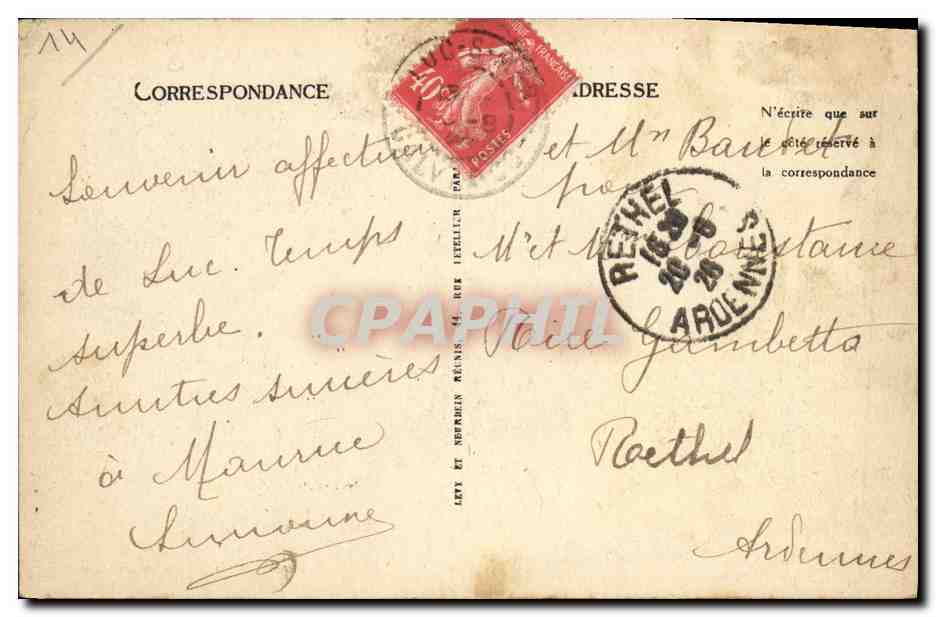 14
CORRESPONDANCE
ADRESSE
N'écrire que sur
le côté réservé à
la correspondance
FRANÇAISE
40c
POSTES
LUC-S
RETHEL
ARDENNES
16 30
20 - 8
26
Souvenir affectueux
de Luc. Temps
superbe.
Amitiés sincères
à Maurice
Simonne
LEVY ET NEURDEIN RÉUNIS, 44, RUE LETELLIER PARIS
et Mme Baudet
pour
Mr et Constame
Rue Gambetta
Rethel
Ardennes
CPAPHIL